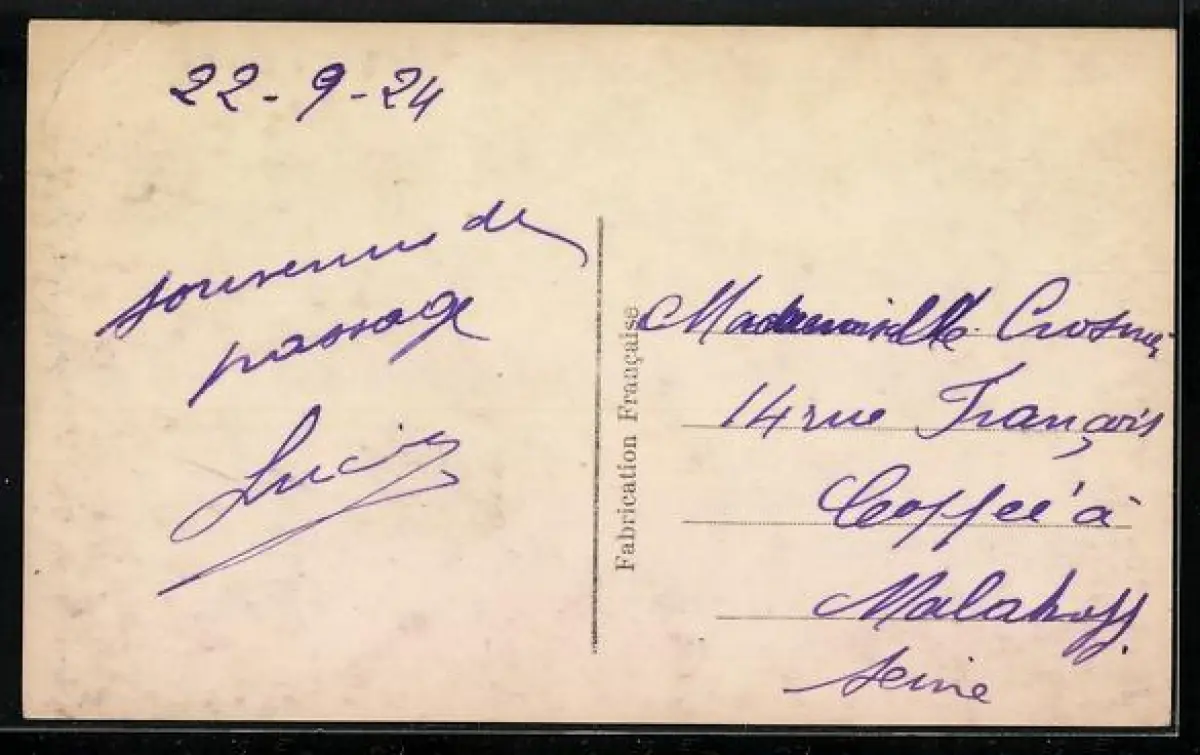 22-9-24
souvenir de
passage
Lucien
Fabrication Française
Mademoiselle Crosnier
14 rue François
Coppée à
Malakoff.
Seine